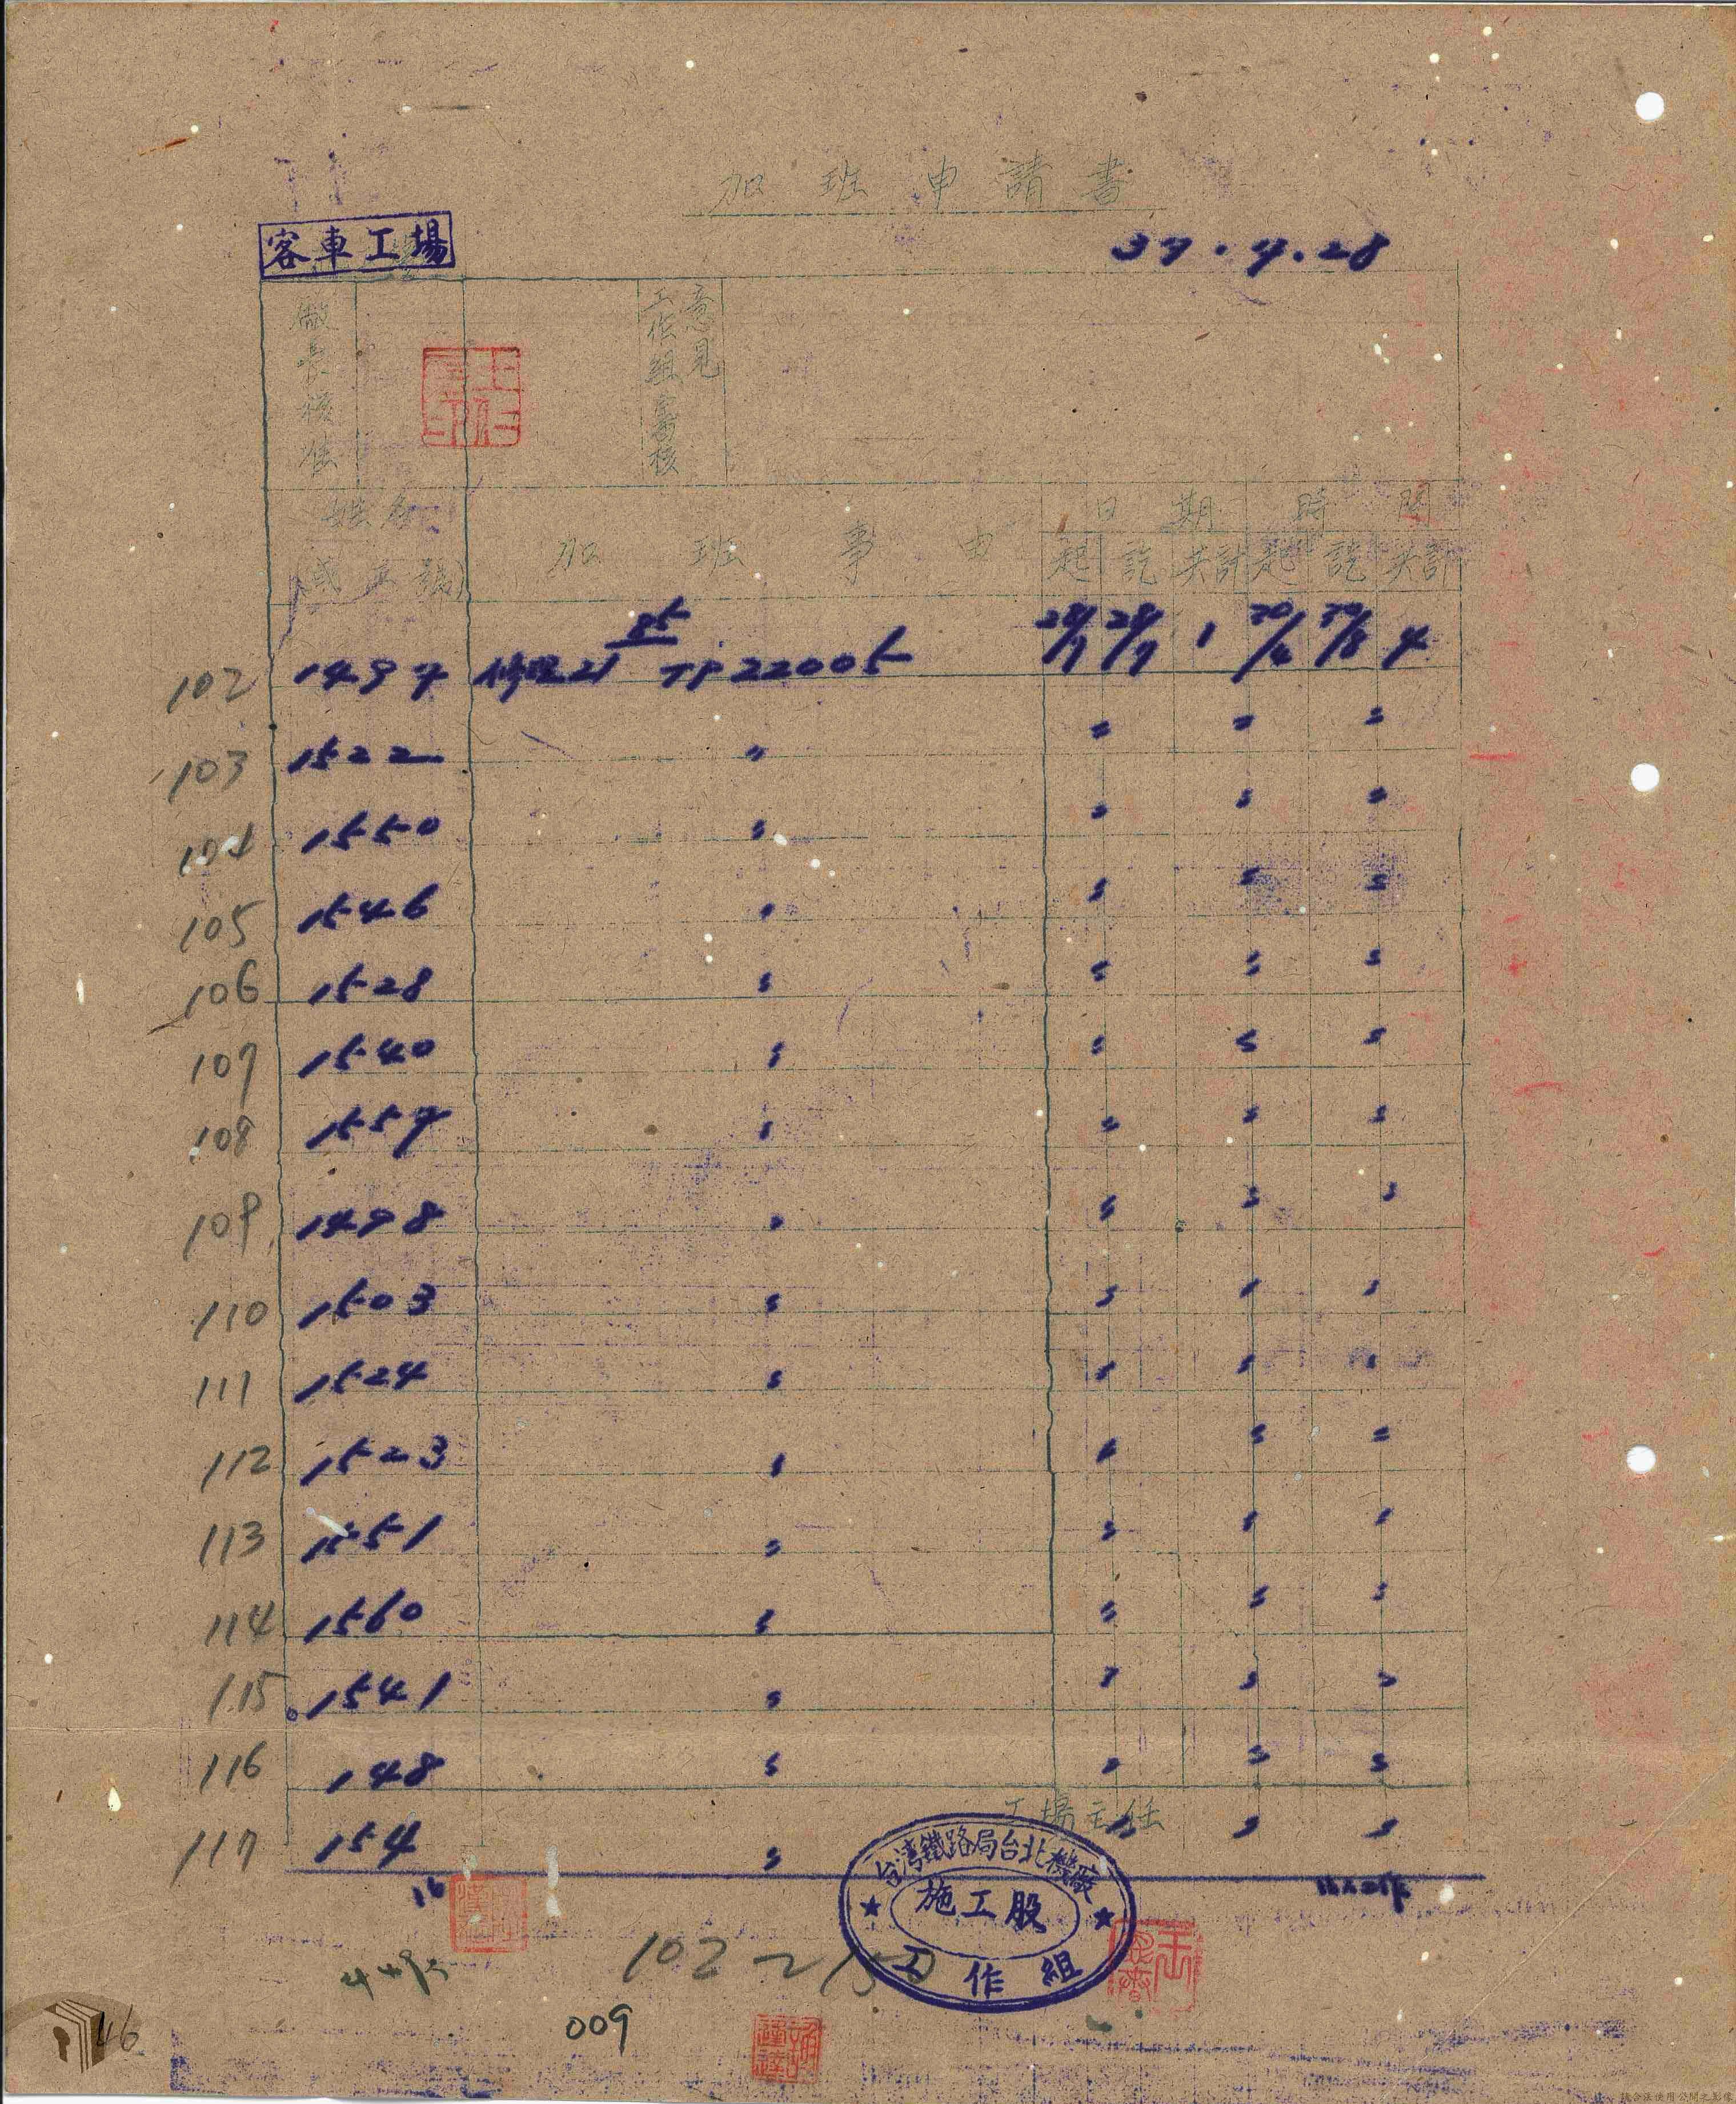 加班申請書
客車工場
37.4.28
廠長核准
工作組審核意見
姓名(或工號) 加班事由 日期 時間
起 訖 共計 起 訖 共計
102 1494 修理21 TP22005 1 4
103 1522 〃 〃 〃 〃
104 1550 〃 〃 〃 〃
105 1546 〃 〃 〃 〃
106 1528 〃 〃 〃 〃
107 1540 〃 〃 〃 〃
108 1557 〃 〃 〃 〃
109 1498 〃 〃 〃 〃
110 1503 〃 〃 〃 〃
111 1524 〃 〃 〃 〃
112 1523 〃 〃 〃 〃
113 1551 〃 〃 〃 〃
114 1560 〃 〃 〃 〃
115 1541 〃 〃 〃 〃
116 148 〃 〃 〃 〃
工場主任
117 154 〃 〃 〃 〃
16
台湾鐵路局台北機廠
施工股
工作組
102～150
009
46